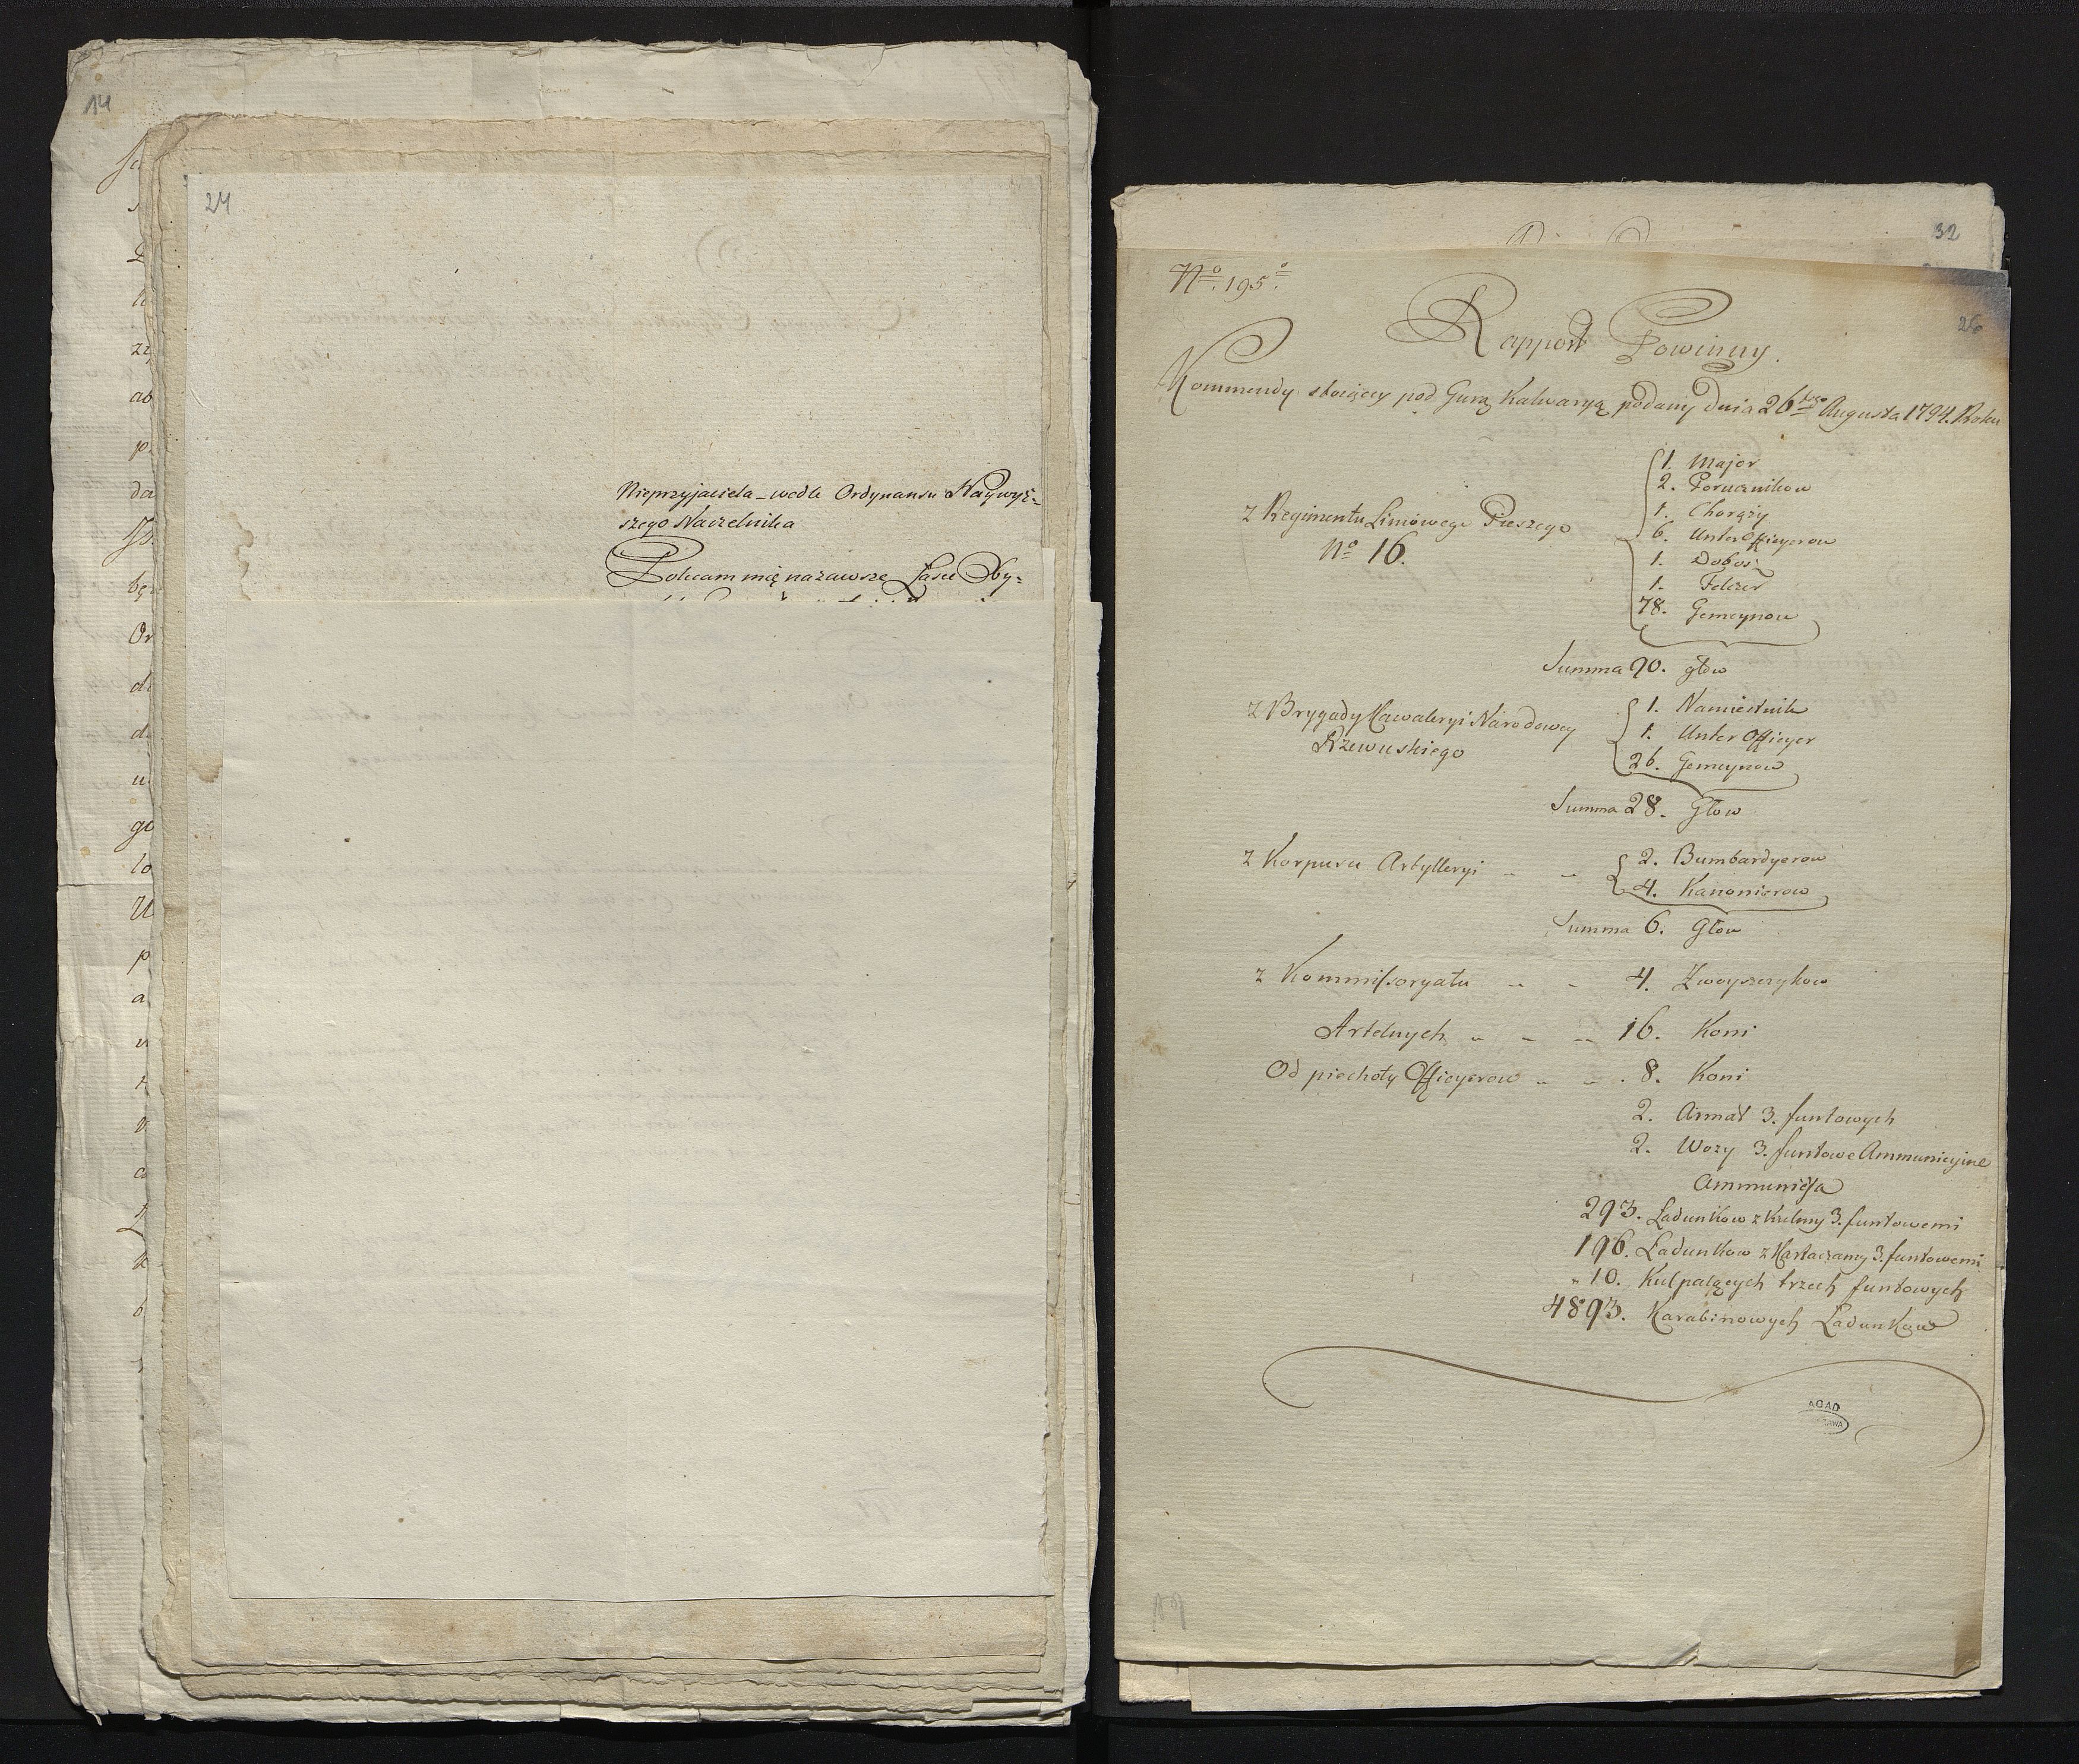 14
24
Nieprzyjaciela – wedle Ordynansu Naywyż=
szego Naczelnika
Polecam mię nazawsze Łasce Oby=
32
26
No. 195o.
Rapport Powinny.
Kommendy stoiącey pod Gurą Kalwaryą podany Dnia 26tego Augusta 1794. Roku
z Regimentu Liniowego Pieszego
No 16.
1. Major
2. Porucznikow
1. Chorąży
6. Unter Officyerow
1. Dobosz
1. Felczer
78. Gemeynow
Summa 90. głow
z Brygady Kawaleryi Narodowey
Rzewuskiego
1. Namiestnik
1. Unter Officyer
26. Gemeynow
Summa 28. Głow
z Korpusu Artylleryi
2. Bumbardyerow
4. Kanonierow
Summa 6. Głow
z Kommissoryatu 4. Zwoyszczykow
Artelnych 16. Koni
Od piechoty Officyerow 8. Koni
2. Armat 3. funtowych
2. Wozy 3. funtowe Ammunicyine
Ammunicya
293. Ładunkow z Kulmy 3. funtowemi
196. Ładunkow z Kartaczamy 3. funtowemi
" 10. Kul palących trzech funtowych
4893. Karabinowych Ładunkow
AGAD